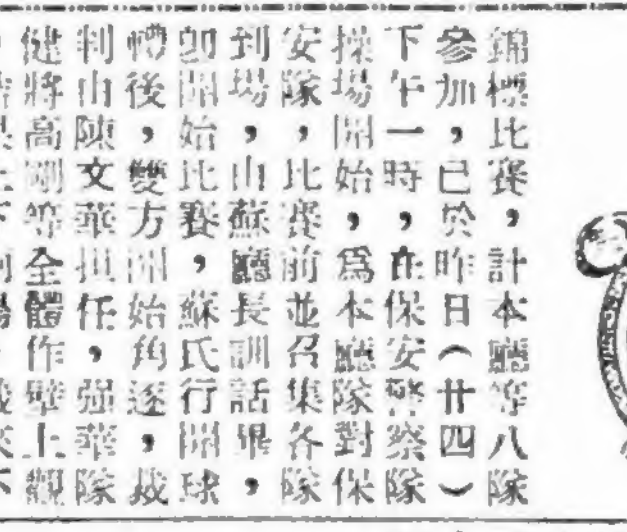 錦標比賽，計本廳等八隊
參加，已於昨日（廿四）
下午一時，在保安警察隊
操場開始，爲本廳隊對保
安隊，比賽前並召集各隊
到場，由蘇廳長訓話畢，
卽開始比賽，蘇氏行開球
禮後，雙方開始角逐，裁
判由陳文華担任，强華隊
健將高剛等全體作壁上觀